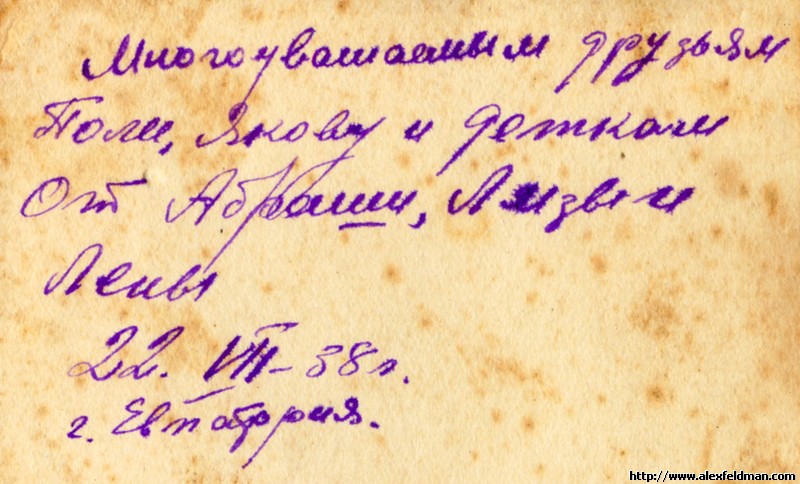 Многоуважаемым друзьям
Поли, Якову и деткам
От Абраши, Лизы и
Лены
22. VIII-38 г.
г. Евпатория.
http://www.alexfeldman.com